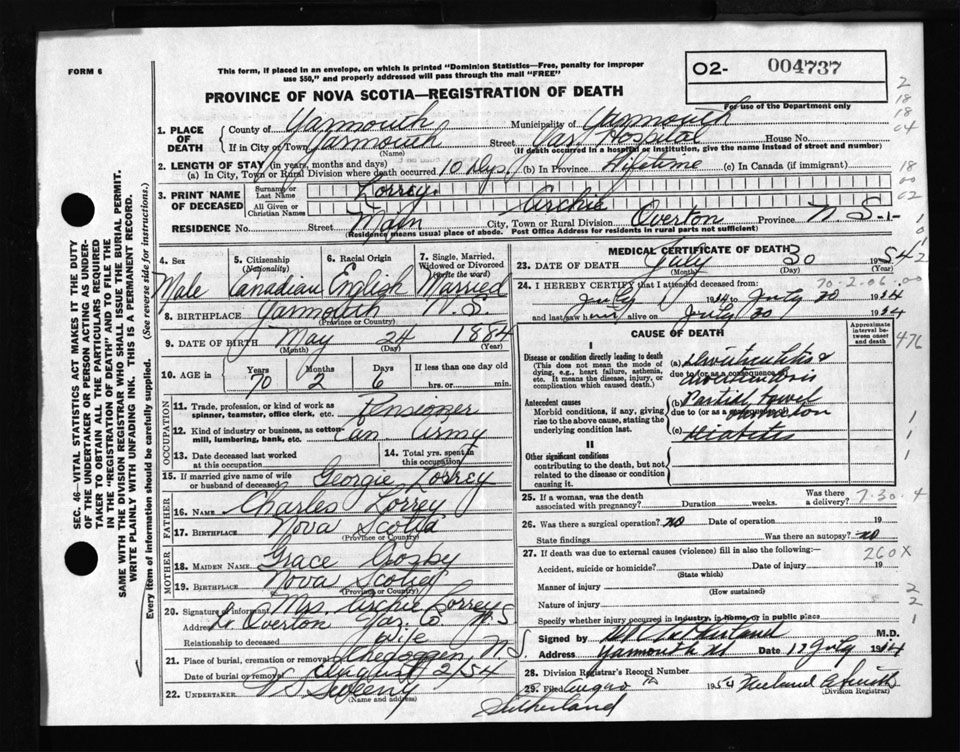 FORM 6
This form, if placed in an envelope, on which is printed "Dominion Statistics—Free, penalty for improper
use $50," and properly addressed will pass through the mail "FREE"
O2- 004737
PROVINCE OF NOVA SCOTIA—REGISTRATION OF DEATH
For use of the Department only
1. PLACE OF DEATH
County of Yarmouth Municipality of Yarmouth
If in City or Town Yarmouth Street Yar. Hospital House No.
(Name) (If death occurred in a hospital or institution, give the name instead of street and number)
2. LENGTH OF STAY (in years, months and days)
(a) In City, Town or Rural Division where death occurred 10 Days. (b) In Province Lifetime (c) In Canada (if immigrant)
3. PRINT NAME OF DECEASED
Surname or Last Name
All Given or Christian Names Archie
RESIDENCE No. Street Main City, Town or Rural Division Overton Province N.S.
(Residence means usual place of abode. Post Office Address for residents in rural parts not sufficient)
4. Sex
Male
5. Citizenship
(Nationality)
Canadian
6. Racial Origin
English
7. Single, Married,
Widowed or Divorced
(write the word)
Married
8. BIRTHPLACE Yarmouth N.S.
(Province or Country)
9. DATE OF BIRTH May 24 1884
(Month) (Day) (Year)
10. AGE in Years Months Days If less than one day old
70 2 6 hrs. or min.
OCCUPATION
11. Trade, profession, or kind of work as
spinner, teamster, office clerk, etc. Pensioner
12. Kind of industry or business, as cotton-
mill, lumbering, bank, etc. Can Army
13. Date deceased last worked
at this occupation
14. Total yrs. spent in
this occupation
15. If married give name of wife
or husband of deceased Georgie
FATHER
16. NAME Charles
17. BIRTHPLACE Nova Scotia
(Province or Country)
MOTHER
18. MAIDEN NAME Grace
19. BIRTHPLACE Nova Scotia
(Province or Country)
20. Signature of informant Mrs. Archie
Address Overton Yar. Co N S
Relationship to deceased wife
21. Place of burial, cremation or removal N.S.
Date of burial or removal August 2/54
22. UNDERTAKER V S Sweeny
(Name and address)
MEDICAL CERTIFICATE OF DEATH
23. DATE OF DEATH July 30 1954
(Month) (Day) (Year)
24. I HEREBY CERTIFY that I attended deceased from:
70-2-06.00
July
and last saw h alive on July 30
CAUSE OF DEATH
Approximate
interval be-
tween onset
and death
I
Disease or condition directly leading to death
(This does not mean the mode of
dying, e.g., heart failure, asthenia,
etc. It means the disease, injury, or
complication which caused death.)
(a)
due to (or as a consequence of)
Antecedent causes
Morbid conditions, if any, giving
rise to the above cause, stating the
underlying condition last.
(b) Partial bowel
due to (or as a
(c) Diabetes
II
Other significant conditions
contributing to the death, but not
related to the disease or condition
causing it.
476
25. If a woman, was the death
associated with pregnancy? Duration weeks. Was there a
delivery?
7-30-4
26. Was there a surgical operation? no Date of operation 19
State findings Was there an autopsy? no
27. If death was due to external causes (violence) fill in also the following:— 260X
Accident, suicide or homicide? Date of injury 19
(State which)
Manner of injury
(How sustained)
Nature of injury
Specify whether injury occurred in industry, in home, or in public place
Signed by M.D.
Address Yarmouth NS Date July
28. Division Registrar's Record Number
29. Filed 1954
(Division Registrar)
Sutherland
SEC. 46—VITAL STATISTICS ACT MAKES IT THE DUTY
OF THE UNDERTAKER OR PERSON ACTING AS UNDER-
TAKER TO OBTAIN ALL THE PARTICULARS REQUIRED
IN THE "REGISTRATION OF DEATH" AND TO FILE THE
SAME WITH THE DIVISION REGISTRAR WHO SHALL ISSUE THE BURIAL PERMIT.
WRITE PLAINLY WITH UNFADING INK. THIS IS A PERMANENT RECORD.
Every item of information should be carefully supplied. (See reverse side for instructions.)